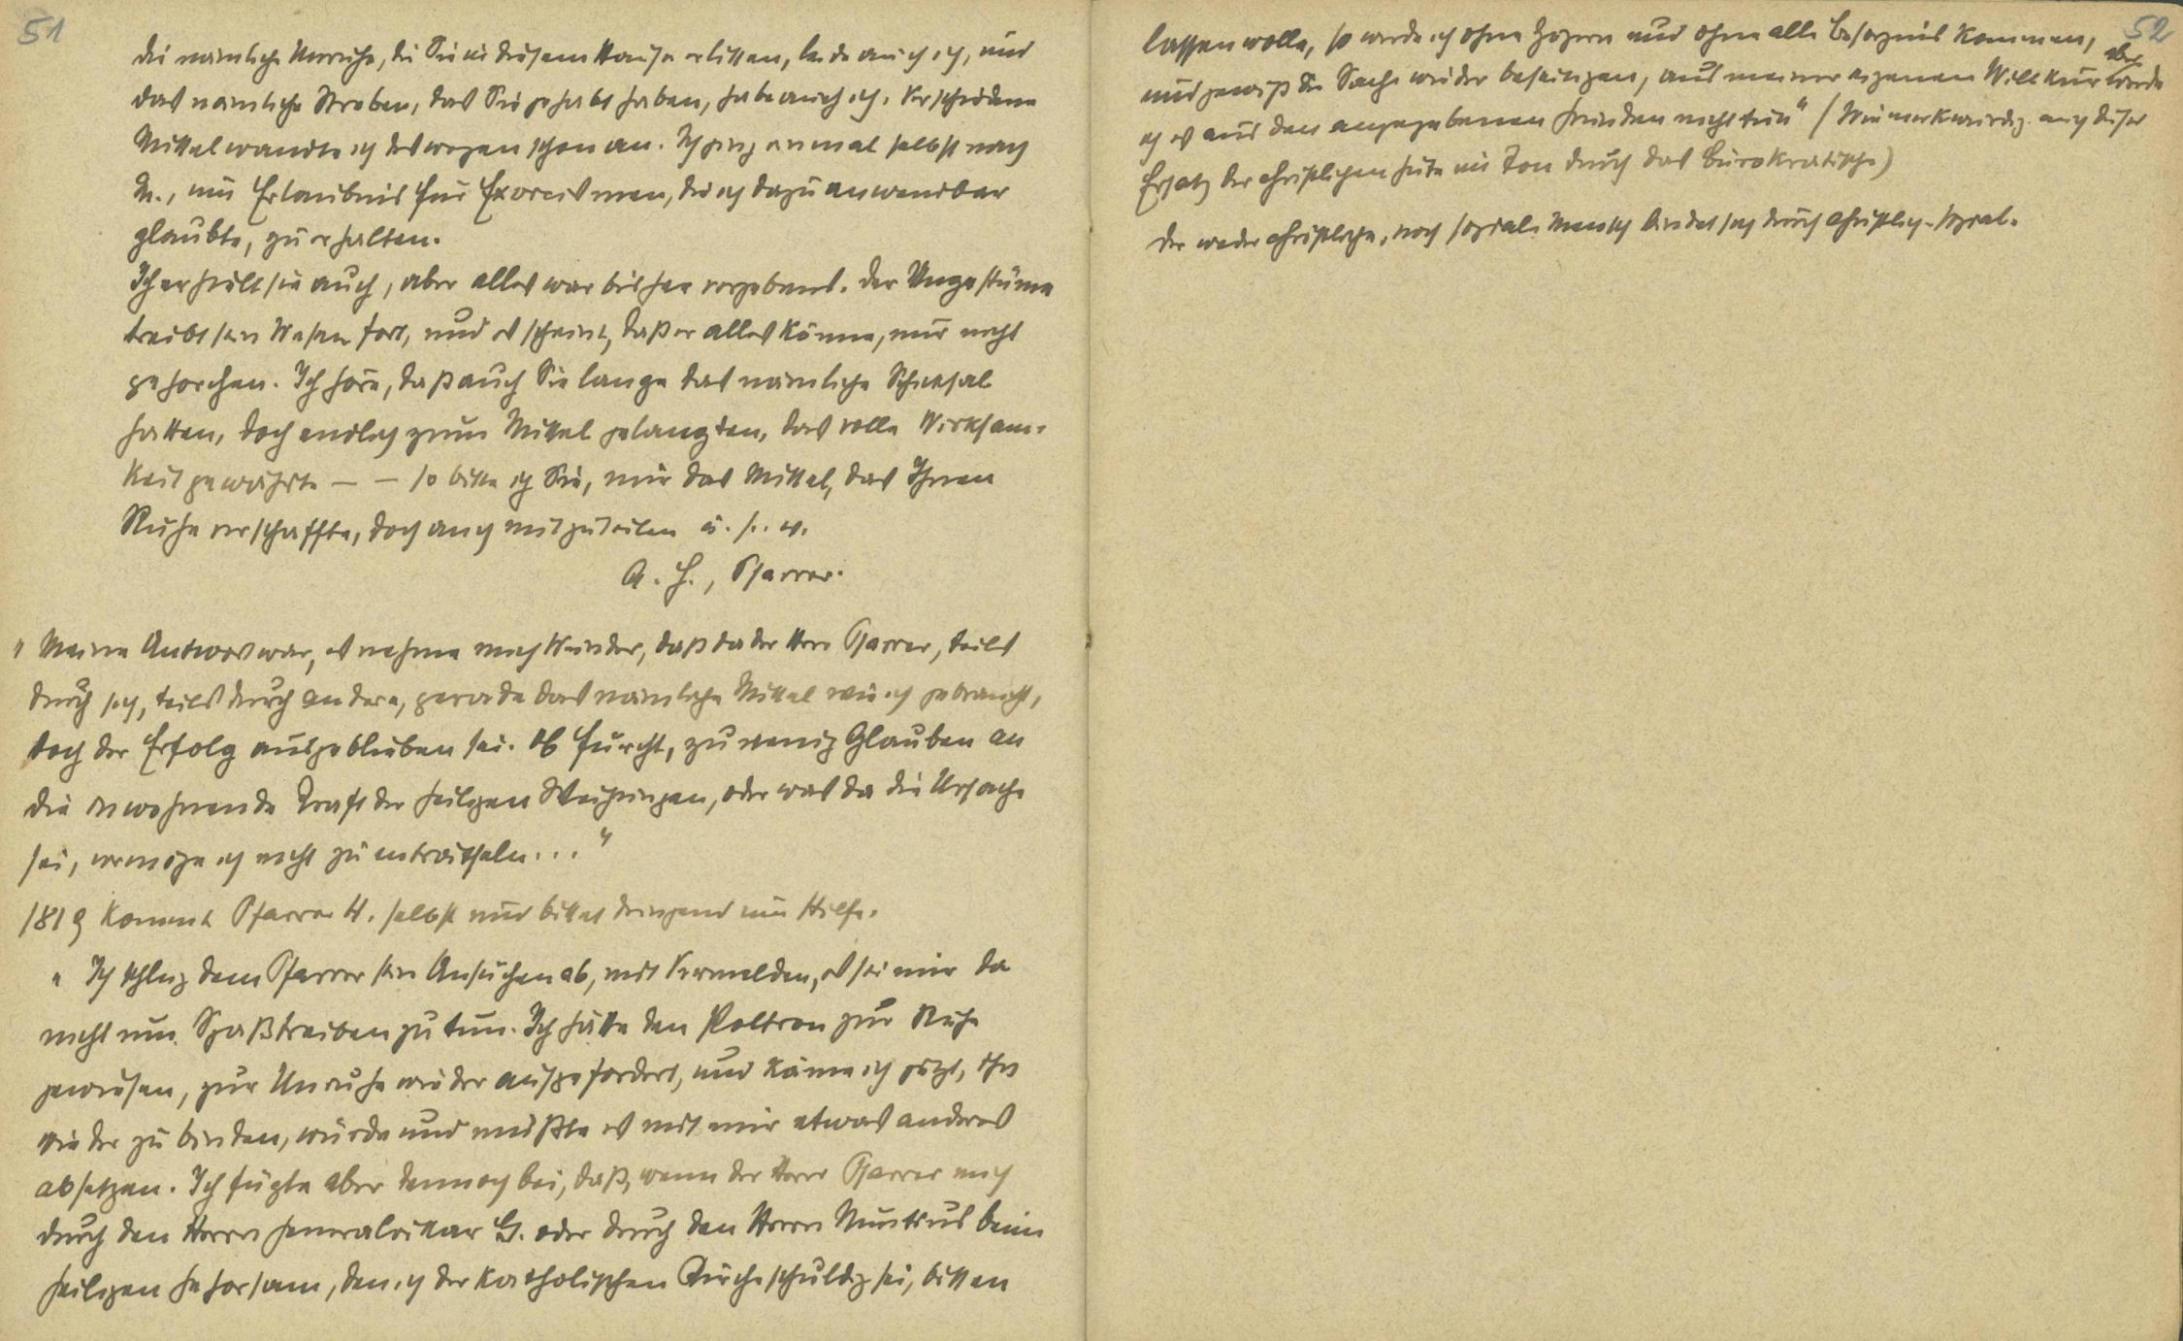 51
die nämliche Unruhe, die Sie in diesem Hause erlitten, leide auch ich, und
das nämliche Streben, das Sie gehabt haben, habe auch ich. Verschiedene
Mittel wandte ich deswegen schon an. Ich ging einmal selbst nach
M., um Erlaubnis für Exorcismen, die ich dazu anwendbar
glaubte, zu erhalten.
Ich erhielt sie auch, aber alles war bisher vergebens. Der Ungestüme
treibt sein Wesen fort, und es scheint, daß er alles könne, nur nicht
gehorchen. Ich höre, daß auch Sie lange das nämliche Schicksal
hatten, doch endlich zum Mittel gelangten, das volle Wirksam-
keit gewährte – – so bitte ich Sie, mir das Mittel, das Ihnen
Ruhe verschaffte, doch auch mitzuteilen u. s. w.
A. H., Pfarrer.
" Meine Antwort war, es nehme mich Wunder, daß da der Herr Pfarrer, teils
durch sich, teils durch andere, gerade das nämliche Mittel wie ich gebraucht,
doch der Erfolg ausgeblieben sei. Ob Furcht, zu wenig Glauben an
die inwohnende Kraft der heiligen Weihungen, oder was da die Ursache
sei, vermöge ich nicht zu enträtseln..."
1819 kommt Pfarrer H. selbst und bittet dringend um Hilfe.
" Ich schlug dem Pfarrer sein Ansuchen ab, mit Vermelden, es sei mir da
nicht um Spaßtreiben zu tun. Ich hätte den Poltron zur Ruhe
gewiesen, zur Unruhe wieder aufgefordert, und käme ich jetzt, ihn
wieder zu binden, würde und müßte es mit mir etwas anderes
absetzen. Ich fügte aber dennoch bei, daß, wenn der Herr Pfarrer mich
durch den Herrn Generalvikar G. oder durch den Herrn Nuntius beim
heiligen Gehorsam, den ich der katholischen Kirche schuldig sei, bitten
52
lassen wolle, so werde ich ohne Zögern und ohne alle Besorgnis kommen,
und gewiß die Sache wieder beseitigen, aus meiner eigenen Willkür aber werde
ich es aus den angegebenen Gründen nicht tun" (Wie merkwürdig auch dieser
Ersatz der christlichen Güte im Ton durch das Bürokratische)
Der weder christliche, noch soziale Mensch bindet sich durch christlich-sozial.